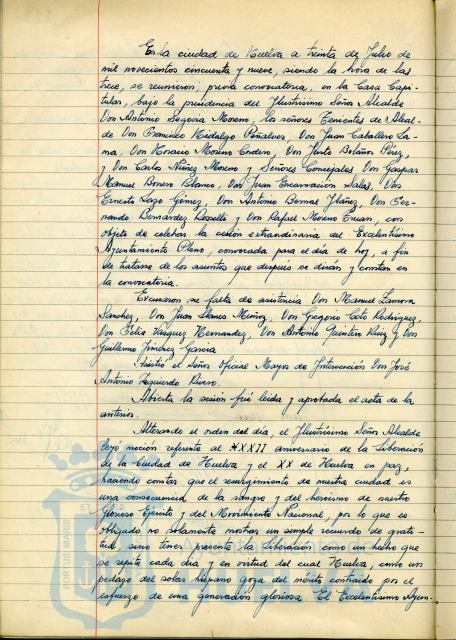 En la ciudad de Huelva a treinta de Julio de
mil novecientos cincuenta y nueve, siendo la hora de las
trece, se reunieron, previa convocatoria, en la Casa Capi-
tular, bajo la presidencia del Ilustrísimo Señor Alcalde
Don Antonio Segovia Moreno, los señores Tenientes de Alcal-
de Don Francisco Hidalgo Peñalver, Don Juan Caballero La-
ma, Don Horacio Moreno Cordero, Don Justo Bolaños Pérez,
y Don Carlos Núñez Moreno y Señores Concejales Don Gaspar
Manuel Borrero Blanco, Don Juan Encarnación Salas, Don
Ernesto Lazo Gómez, Don Antonio Bernal Ibáñez, Don Fer-
nando Bernárdez y Don Rafael Moreno con
objeto de celebrar la sesión extraordinaria del Excelentísimo
Ayuntamiento Pleno, convocada para el día de hoy, a fin
de tratarse de los asuntos que después se dirán y constan en
la convocatoria.
Excusaron su falta de asistencia Don Manuel Zamora
Sánchez, Don Juan Muñoz, Don Gregorio Rodríguez,
Don Félix Vázquez Hernández, Don Antonio Quintero Ruiz y Don
Guillermo Jiménez García
Asistió el Señor Oficial Mayor de Intervención Don José
Antonio Izquierdo Rivero.
Abierta la sesión fué leída y aprobada el acta de la
anterior.
Alterando el orden del día, el Ilustrísimo Señor Alcalde
leyó moción referente al XXII aniversario de la Liberación
de la Ciudad de Huelva y el XX de Huelva en paz,
haciendo constar que el resurgimiento de nuestra ciudad es
una consecuencia de la sangre y del heroismo de nuestro
Glorioso Ejército y del Movimiento Nacional, por lo que es
obligado no solamente mostrar un simple recuerdo de grati-
tud, sino tener presente la Liberación como un hecho que
se repite cada día y en virtud del cual Huelva, como un
pedazo del solar hispano goza del mérito contraido por el
esfuerzo de una generación gloriosa. El Excelentísimo Ayun-
PORTUS MARIS